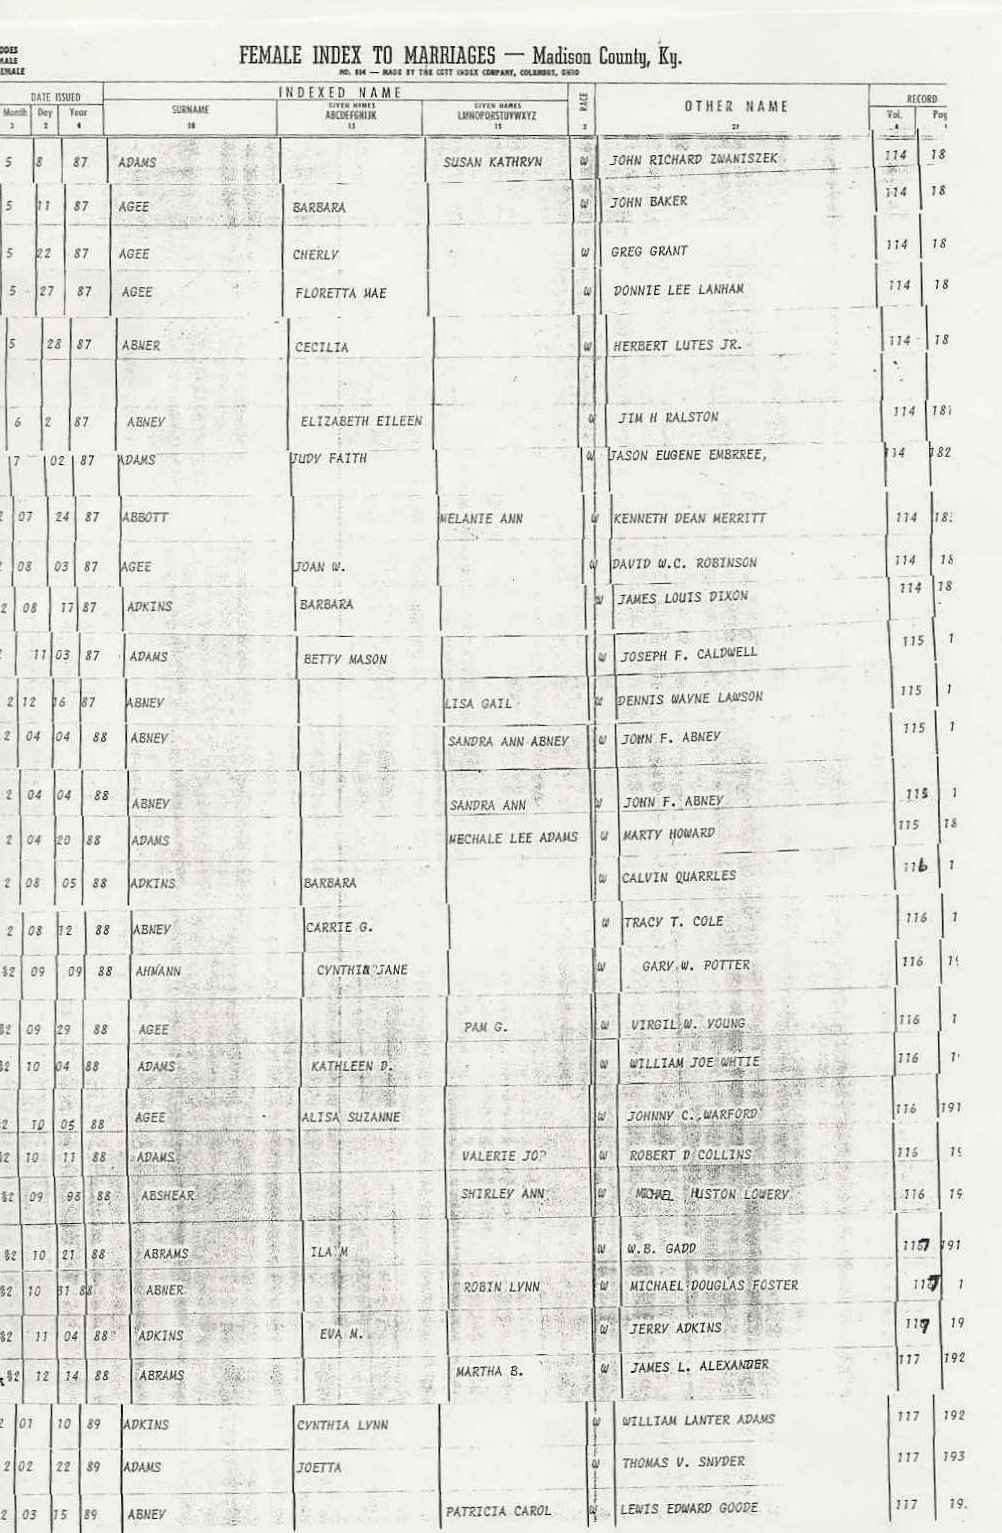 ODES
MALE
EMALE
FEMALE INDEX TO MARRIAGES — Madison County, Ky.
NO. 814 — MADE BY THE COTT INDEX COMPANY, COLUMBUS, OHIO
DATE ISSUED INDEXED NAME RACE OTHER NAME RECORD
Month Day Year SURNAME GIVEN NAMES ABCDEFGHIJK GIVEN NAMES LMNOPQRSTUVWXYZ Vol. Pag
5 8 87 ADAMS SUSAN KATHRYN W JOHN RICHARD ZWANISZEK 114 18
5 11 87 AGEE BARBARA W JOHN BAKER 114 18
5 22 87 AGEE CHERLY W GREG GRANT 114 18
5 27 87 AGEE FLORETTA MAE W DONNIE LEE LANHAM 114 18
5 28 87 ABNER CECILIA W HERBERT LUTES JR. 114 18
6 2 87 ABNEY ELIZABETH EILEEN W JIM H RALSTON 114 181
7 02 87 ADAMS JUDY FAITH W JASON EUGENE EMBRREE, 114 182
2 07 24 87 ABBOTT MELANIE ANN W KENNETH DEAN MERRITT 114 18
08 03 87 AGEE JOAN W. W DAVID W.C. ROBINSON 114 18
2 08 17 87 ADKINS BARBARA W JAMES LOUIS DIXON 114 18
11 03 87 ADAMS BETTY MASON W JOSEPH F. CALDWELL 115 1
2 12 16 87 ABNEY LISA GAIL W DENNIS WAYNE LAWSON 115 1
2 04 04 88 ABNEY SANDRA ANN ABNEY W JOHN F. ABNEY 115 1
2 04 04 88 ABNEY SANDRA ANN W JOHN F. ABNEY 115 1
2 04 20 88 ADAMS MECHALE LEE ADAMS W MARTY HOWARD 115 18
2 08 05 88 ADKINS BARBARA W CALVIN QUARRLES 116 1
2 08 12 88 ABNEY CARRIE G. W TRACY T. COLE 116 1
§2 09 09 88 AHMANN CYNTHIA JANE W GARY W. POTTER 116 19
§2 09 29 88 AGEE PAM G. W VIRGIL W. YOUNG 116 1
§2 10 04 88 ADAMS KATHLEEN D. W WILLIAM JOE WHTIE 116 1
2 10 05 88 AGEE ALISA SUZANNE W JOHNNY C. WARFORD 116 191
§2 10 11 88 ADAMS VALERIE JO? W ROBERT D COLLINS 116 19
§2 09 98 88 ABSHEAR SHIRLEY ANN W MICHAEL HUSTON LOWERY 116 19
§2 10 21 88 ABRAMS ILA M W W.B. GADD 117 191
§2 10 31 88 ABNER ROBIN LYNN W MICHAEL DOUGLAS FOSTER 117 1
§2 11 04 88 ADKINS EVA M. W JERRY ADKINS 117 19
§2 12 14 88 ABRAMS MARTHA B. W JAMES L. ALEXANDER 117 192
2 01 10 89 ADKINS CYNTHIA LYNN W WILLIAM LANTER ADAMS 117 192
2 02 22 89 ADAMS JOETTA W THOMAS V. SNYDER 117 193
2 03 15 89 ABNEY PATRICIA CAROL W LEWIS EDWARD GOODE 117 19.